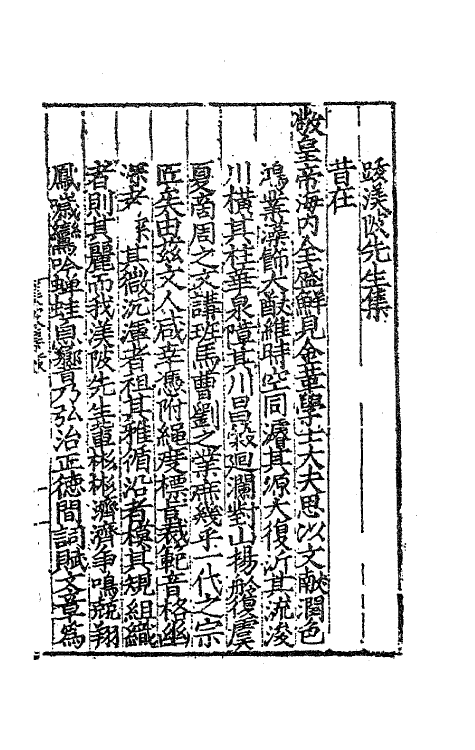 跋渼陂先生集
昔在
敬皇帝海内全盛鮮見金革學士大夫思以文猷潤色
鴻業藻飾大猷維時空同濬其源大復沂其流浚
川橫其柱華泉障其川昌穀迴瀾對山楊盤復虞
夏商周之文講班馬曹劉之業庶幾乎一代之宗
匠矣由茲文人咸幸憑附繩度標旨裁範音格幽
深者系其微沉渾者祖其雅循沿者模其規組織
者則其麗而我渼陂先生輩彬彬濟濟爭鳴翱
鳳噦鸞吟蟬蛙息響乃弘治正德間詞賦文章為